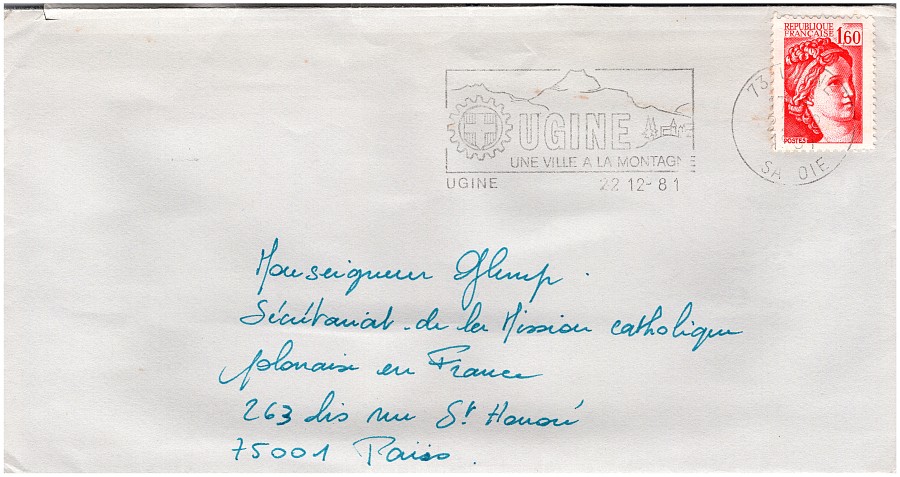 REPUBLIQUE
FRANÇAISE
1,60
POSTES
73
SA OIE
UGINE
UNE VILLE A LA MONTAGNE
UGINE 22 12-81
Monseigneur Glemp.
Sécrétariat de la Mission catholique
polonaise en France
263 bis rue St Honoré
75001 Paris.